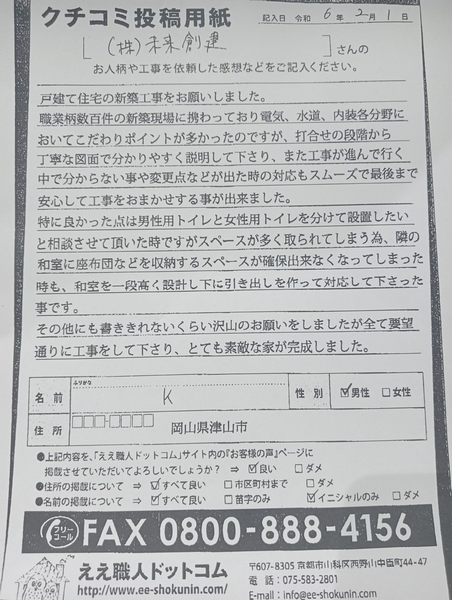 クチコミ投稿用紙
記入日 令和 6年 2月 1日
[ (株)未来創建 ]さんの
お人柄や工事を依頼した感想などをご記入ください。
戸建て住宅の新築工事をお願いしました。
職業柄数百件の新築現場に携わっており電気、水道、内装各分野に
おいてこだわりポイントが多かったのですが、打合せの段階から
丁寧な図面で分かりやすく説明して下さり、また工事が進んで行く
中で分からない事や変更点などが出た時の対応もスムーズで最後まで
安心して工事をおまかせする事が出来ました。
特に良かった点は男性用トイレと女性用トイレを分けて設置したい
と相談させて頂いた時ですがスペースが多く取られてしまう為、隣の
和室に座布団などを収納するスペースが確保出来なくなってしまった
時も、和室を一段高く設計し下に引き出しを作って対応して下さった
事です。
その他にも書ききれないくらい沢山のお願いをしましたが全て要望
通りに工事をして下さり、とても素敵な家が完成しました。
ふりがな
名前 K 性別 ☑男性 □女性
住所 □□□-□□□□ 岡山県津山市
●上記内容を、「ええ職人ドットコム」サイト内の『お客様の声』ページに
掲載させていただいてよろしいでしょうか? ⇒ ☑良い □ダメ
●住所の掲載について ⇒ ☑すべて良い □市区町村まで □ダメ
●名前の掲載について ⇒ ☑すべて良い □苗字のみ ☑イニシャルのみ □ダメ
フリーコール FAX 0800-888-4156
ええ職人ドットコム
http://www.ee-shokunin.com/
〒607-8305 京都市山科区西野山中臣町44-47
電話:075-583-2801
E-mail:info@ee-shokunin.com